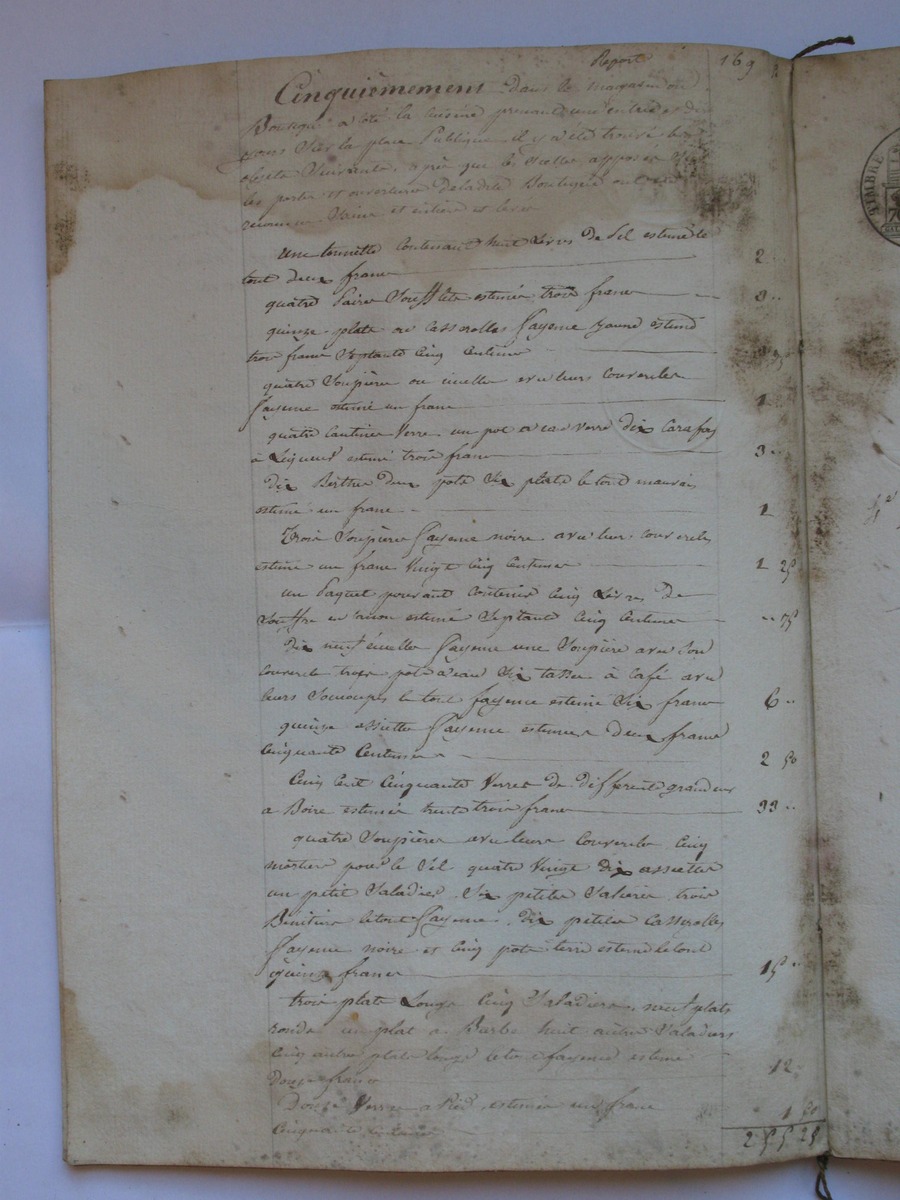 Report 169
Cinquièmement Dans le magasin ou
Boutique a côté la Cuisine prenant une entrée et
jours Sur la place Publique il y a été trouvé les
objets Suivants, après que les Scelles apposés
les portes et ouvertures de ladite Boutique ont été
reconnus Saine et entiers et levés
une tonnette Contenant huit Livres De Sel estimé le
tout deux francs 2
quatre paires Soufflets estimés trois francs 3 ..
quinze plats ou Casserolles fayence jaune estimé
trois francs Septante Cinq Centimes
quatre Soupières ou écuelles avec leurs Couvercles
fayence estimé un franc 1
quatre Cantines Verre un pot a eau verre dix Carafes
a Liqueur estimé trois francs 3 ..
dix pots Six plats le tout mauvais
estimé un franc 1
Trois Soupières fayence noire avec leur Couvercles
estimé un franc Vingt Cinq Centimes 1 25
un Paquet pouvant Contenir Cinq Livres De
Souffre en Canon estimé Septante Cinq Centimes .. 75
Dix neuf écuelles fayence une Soupière avec Son
Couvercle trois pots a eau Six tasses à Café avec
leurs Soucoupes le tout fayence estimé Six francs 6 ..
quinze assiettes fayence estimées Deux francs
Cinquante Centimes 2 50
Cinq Cent Cinquante Verres de différent grandeurs
a Boire estimés trente trois francs 33 ..
quatre Soupières avec leurs Couvercles Cinq
mortiers pour le Sel quatre Vingt dix assiettes
un petit Saladier, Six petites Salières trois
Bénitiers le tout fayence, dix petites Casserolles
fayence noire et Cinq pots terre estimé le tout
quinze francs 15 ..
trois plats Longs Cinq Saladiers, neuf plats
ronds un plat a Barbe huit autres Saladiers
Cinq autres plats longs le tout fayence estimé
Douze francs 12
Douze Verres a Pied, estimés un franc
Cinquante Centimes 1 50
255 25
TIMBRE